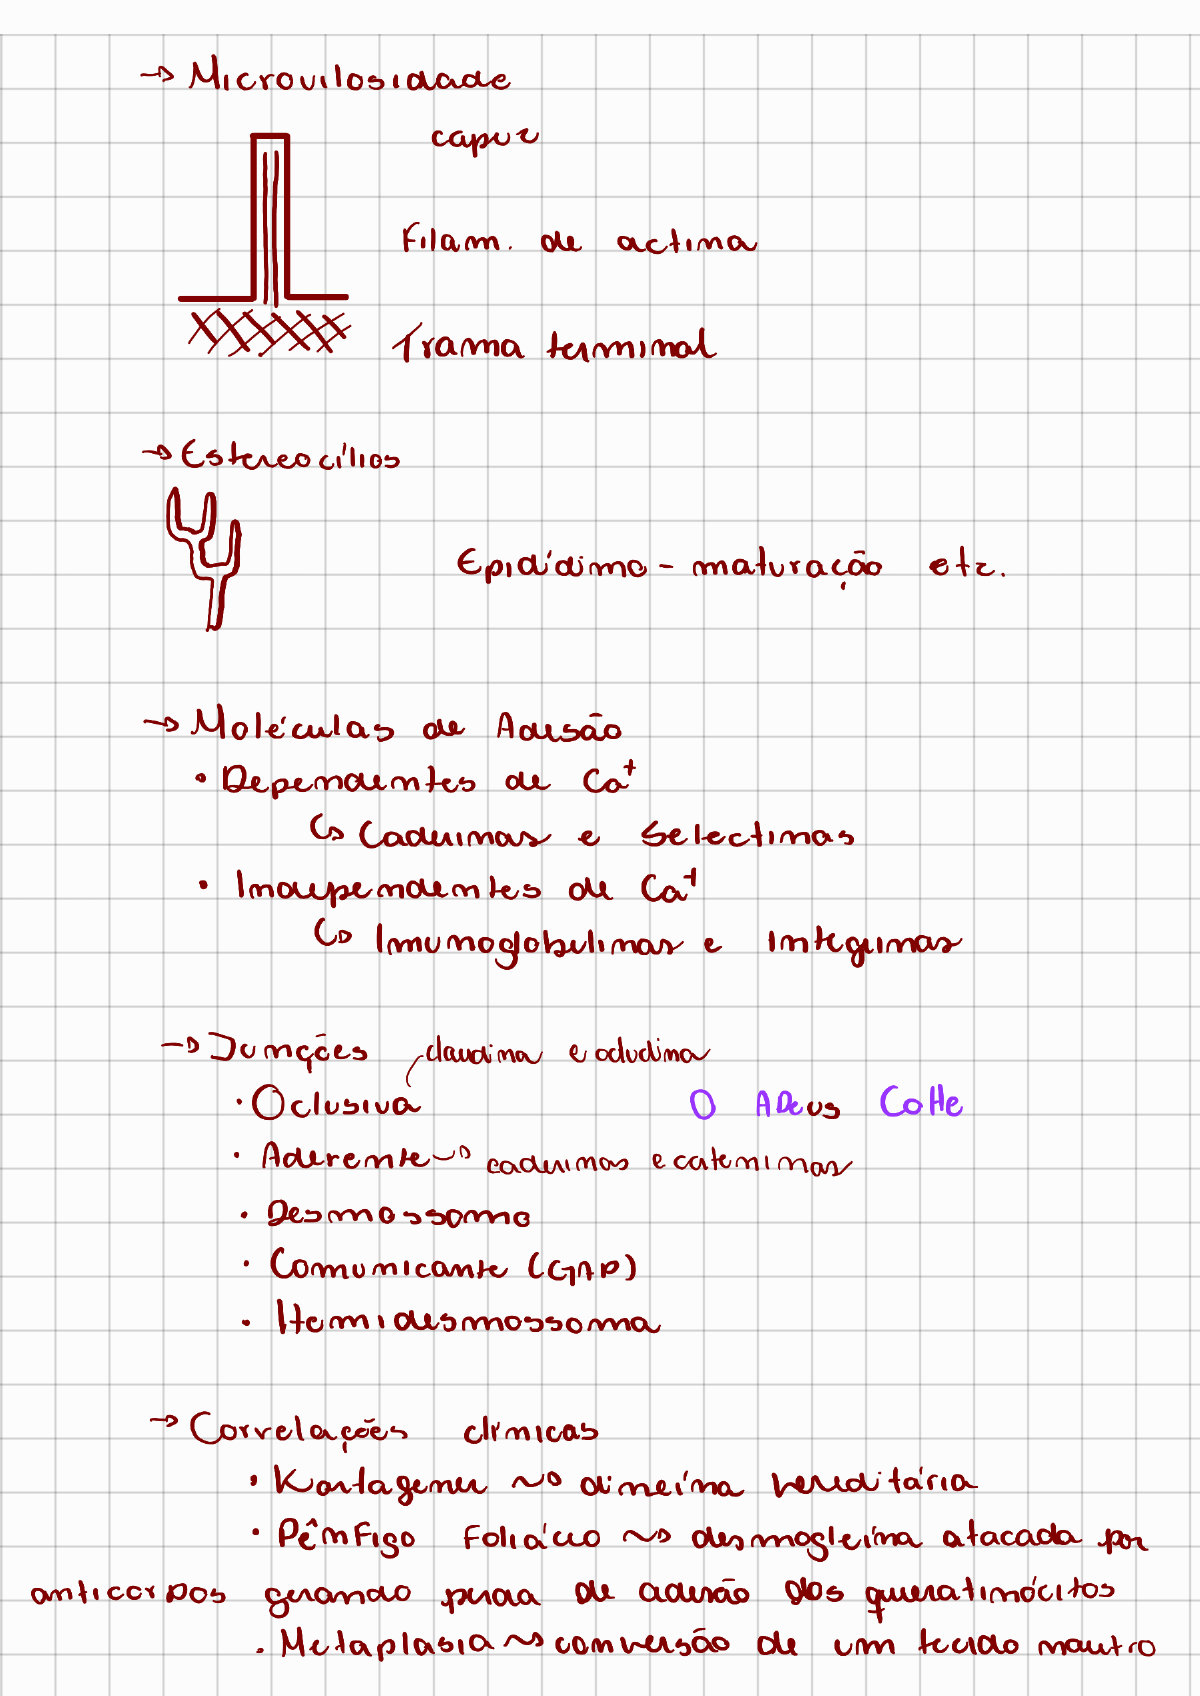 → Microvilosidade
capuz
Filam. de actina
Trama terminal
→ Estereocílios
Epidídimo - maturação etc.
→ Moléculas de Adesão
• Dependentes de Ca⁺
↳ Caderinas e Selectinas
• Independentes de Ca⁺
↳ Imunoglobulinas e Integrinas
→ Junções claudina e ocludina
• Oclusiva O ADeus CoHe
• Aderente → caderinas e cateninas
• Desmossomo
• Comunicante (GAP)
• Hemidesmossoma
→ Correlações clínicas
• Kartagener ~> dineína hereditária
• Pênfigo Foliáceo ~> desmogleína atacada por
anticorpos gerando perda de adesão dos queratinócitos
• Metaplasia ~> conversão de um tecido maduro